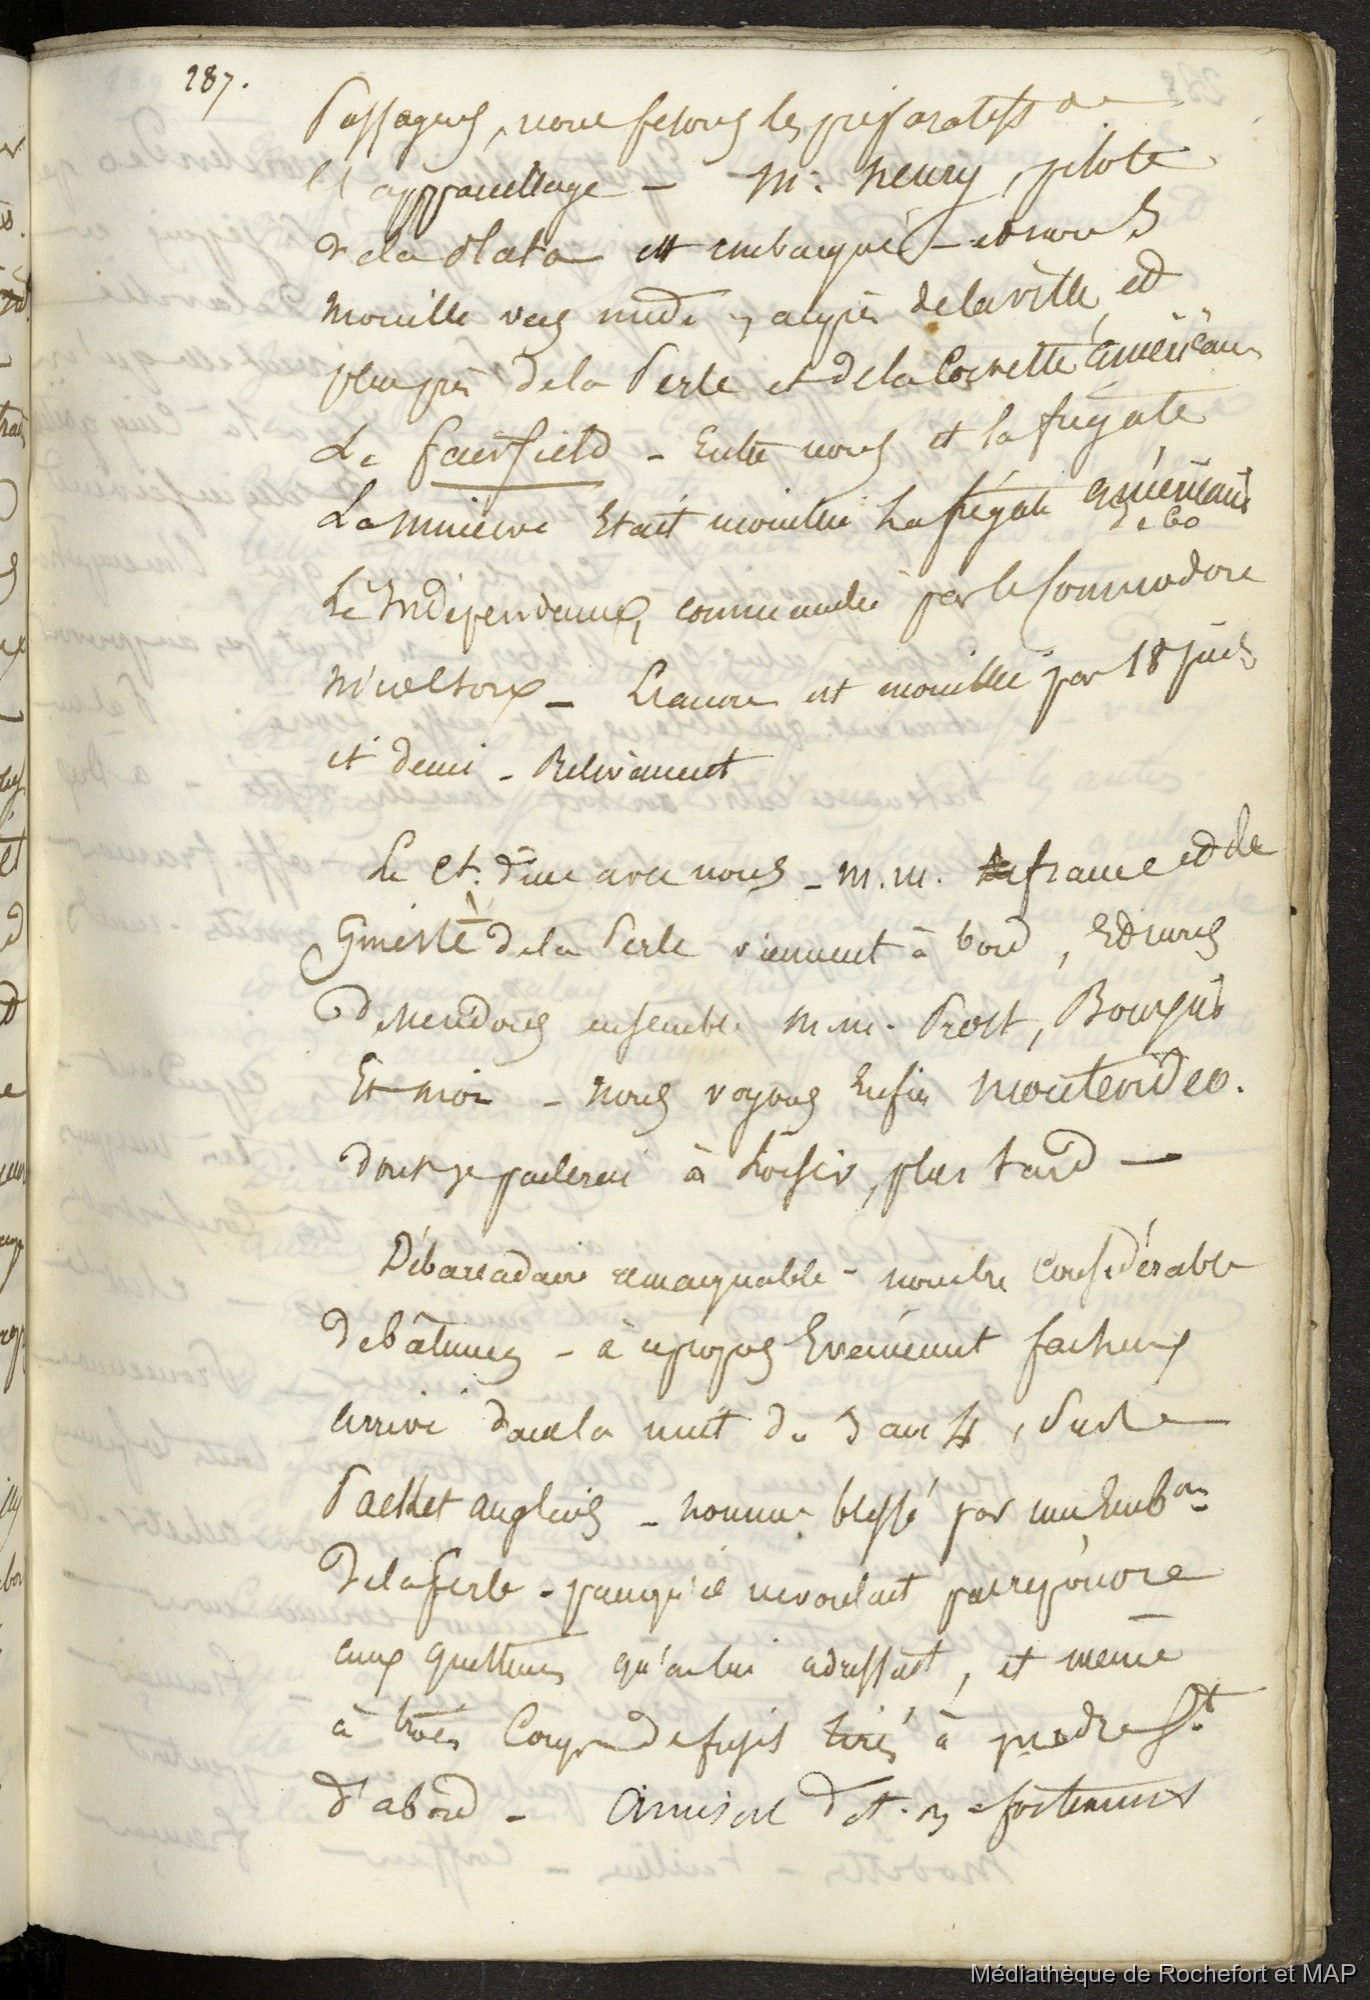 287.
Passagers, nous fesons les préparatifs de
l'appareillage - Mr. henry, pilote
de la plata est embarqué - et nous
mouille vers midi, auprès de la ville, et
plus près de la Perle et de la Corvette américaine
Le fairfield - Entre nous et la frégate
La minerve Etait mouillée La frégate américaine
de 60
L'Indépendance, commandée par le Commodore
nicolson - L'ancre est mouillée par 18 pieds
et demi - Relèvement
Le Ct. dine avec nous - M.M. de france et de
de la Perle viennent à bord, Et nous
descendons ensemble M.M. Prost, Bourgeois
Et moi - nous voyons Enfin Montevideo.
dont je parlerai à loisir, plus tard —
Débarcadaire remarquable - nombre considérable
de bâtimens - à ce propos Evènement facheux
arrivé dans la nuit du 3 au 4, Sur le
Packet anglais - homme blessé par une Emb.on
de la Perle - parcequ'il ne voulait pas répondre
aux questions qu'on lui adressait, et même
à trois Coups de fusils tirés à poudre
d'abord -